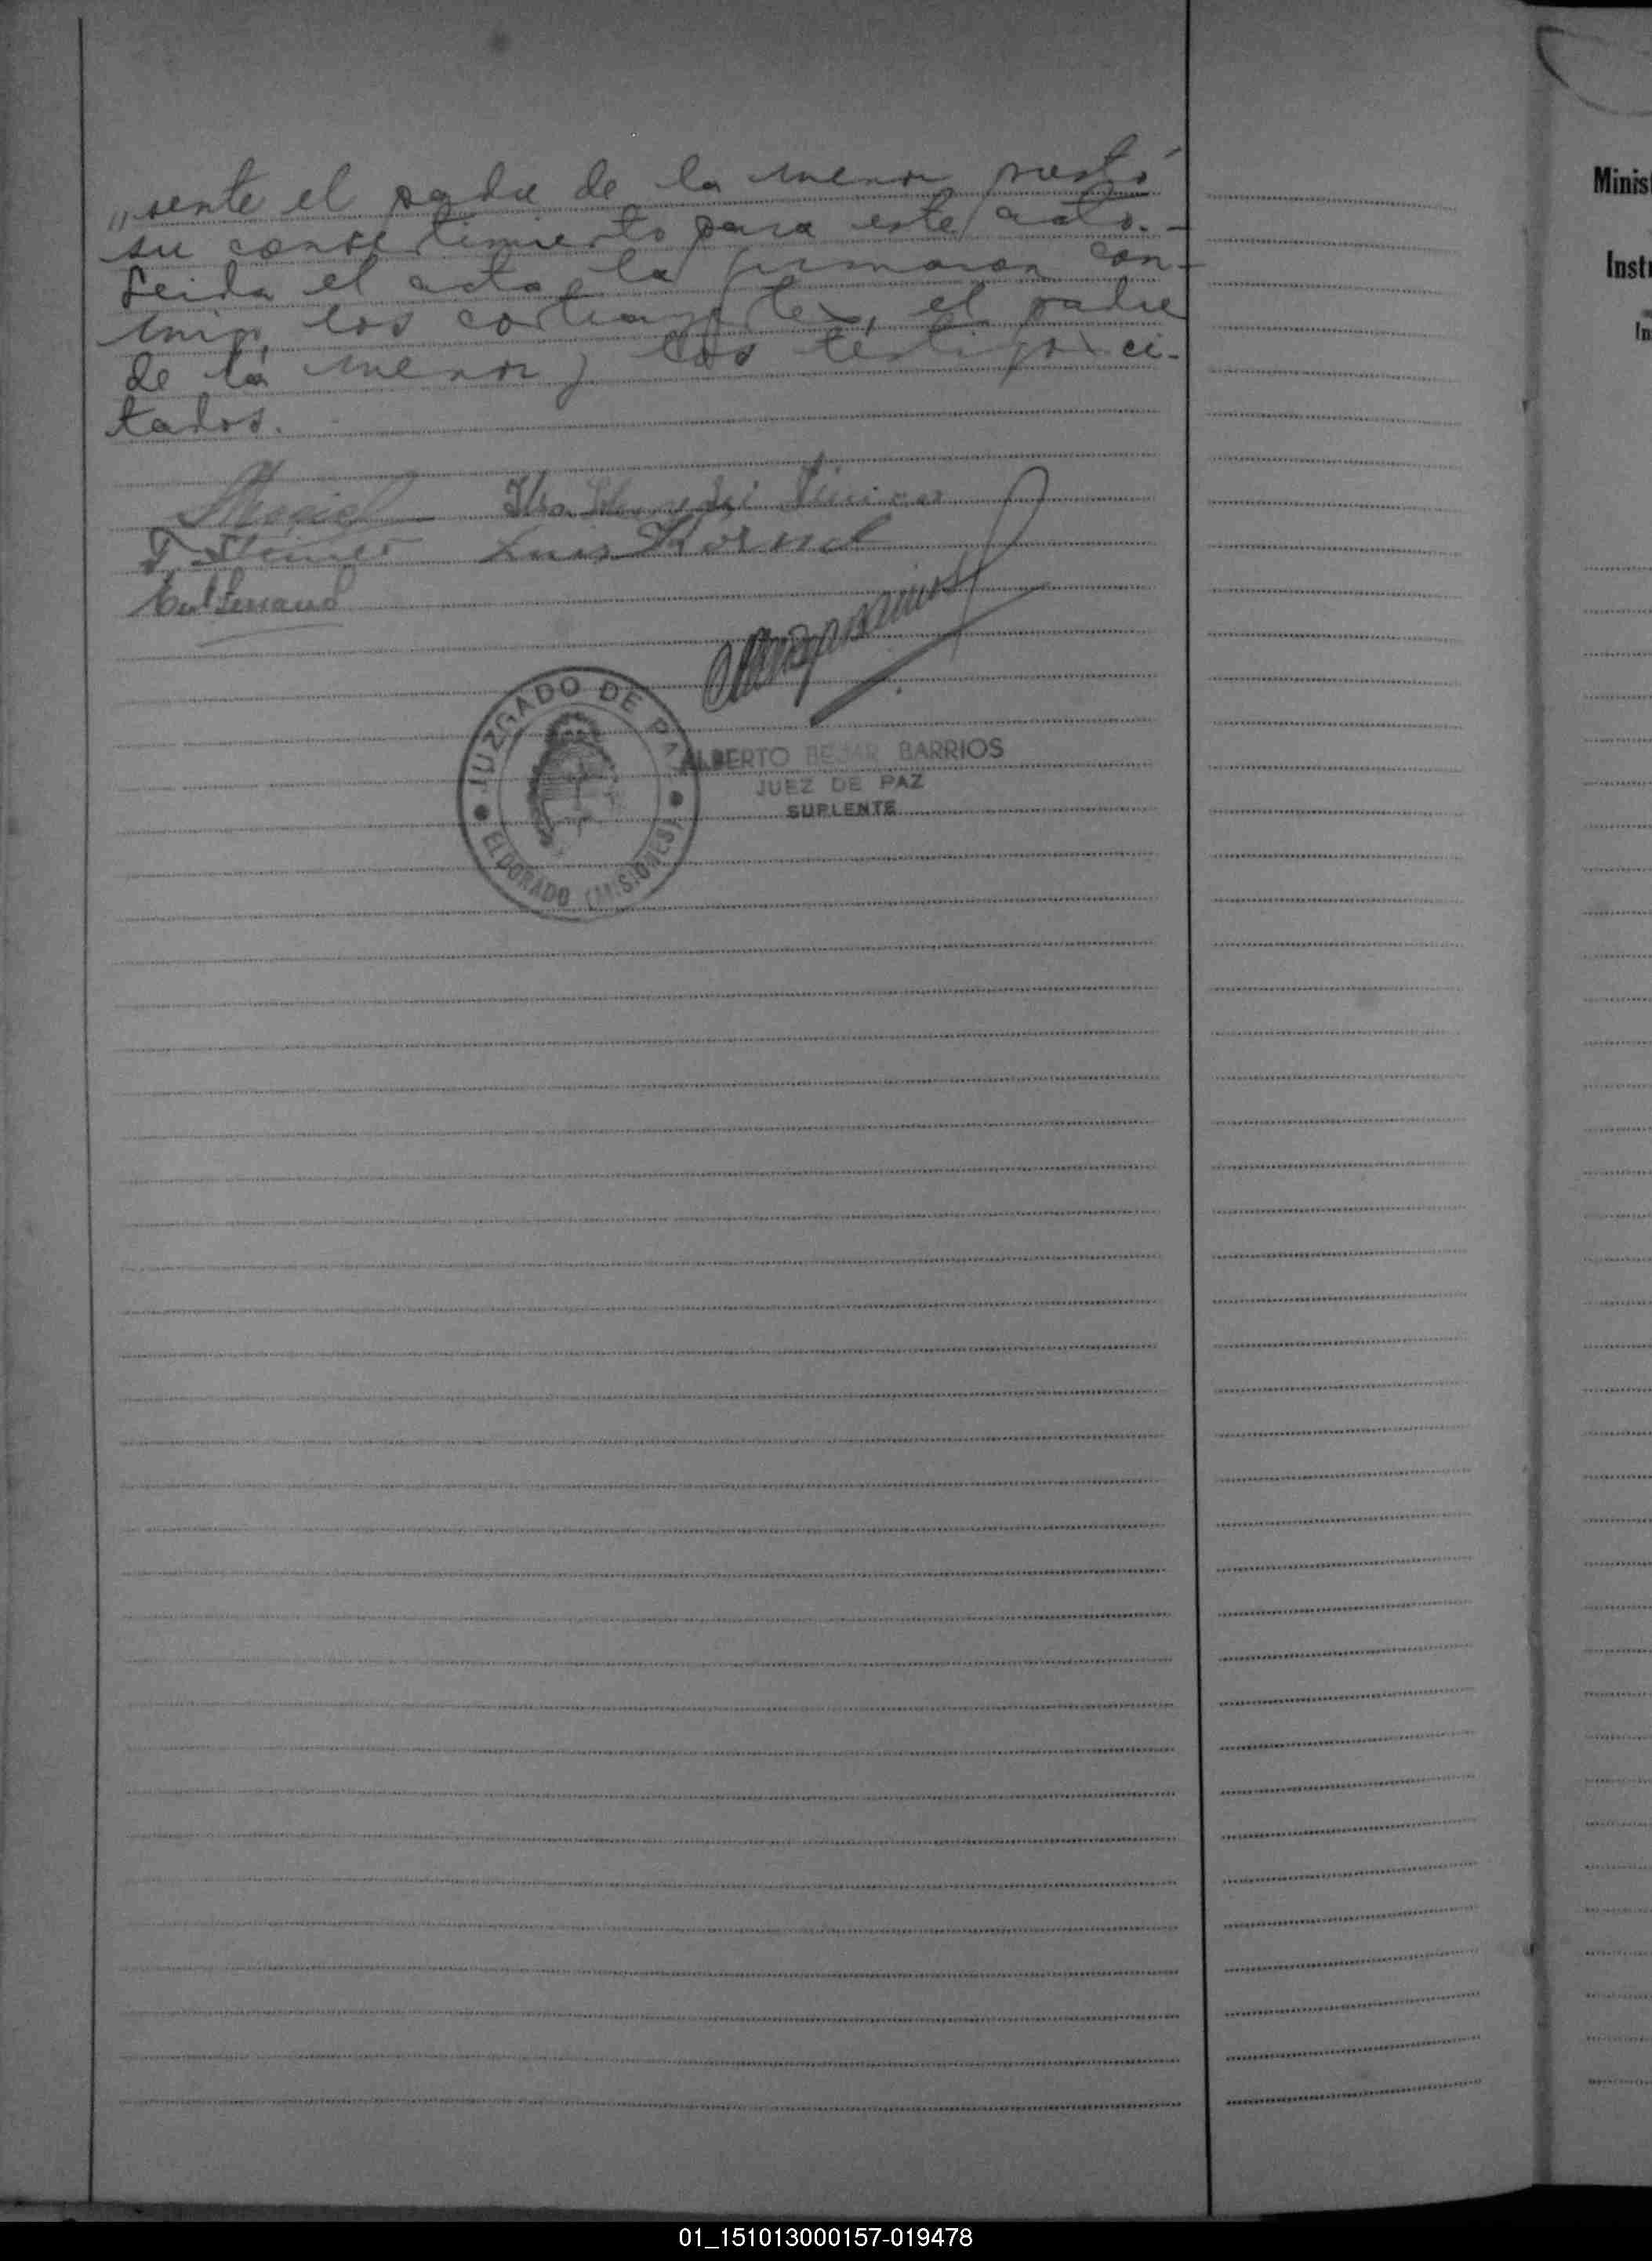 „sente el padre de la menor prestó
su consentimiento para este acto.-
Leida el acta, la firmaron con-
migo, los contrayentes, el padre
de la menor y los testigos ci-
tados.
Luis
JUZGADO DE PAZ
ELDORADO (MISIONES)
ALBERTO BEJAR BARRIOS
JUEZ DE PAZ
SUPLENTE
Minis
Inst
In
01_151013000157-019478